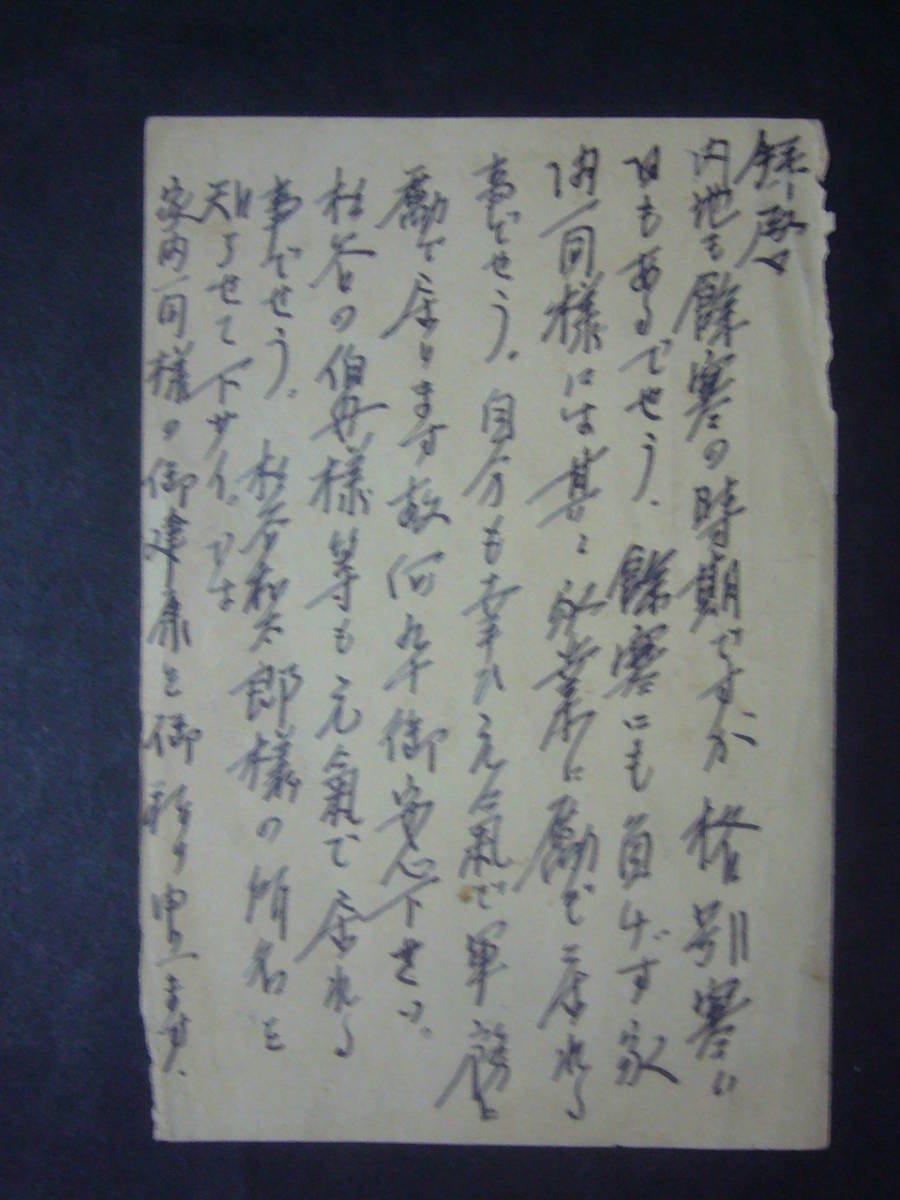 拝啓
内地も餘寒の時期ですが格別寒い
日もあるでせう、餘寒にも負けず家
内一同様には其々家業に励で居れる
事でせう。自分も幸に元氣で軍務に
励で居ります故何卒御安心下せい。
杉谷の伯母様等も元氣で居れる
事でせう。杉谷和太郎様の所名を
知らせて下サイ。では
家内一同様の御建康を御祈り申します、